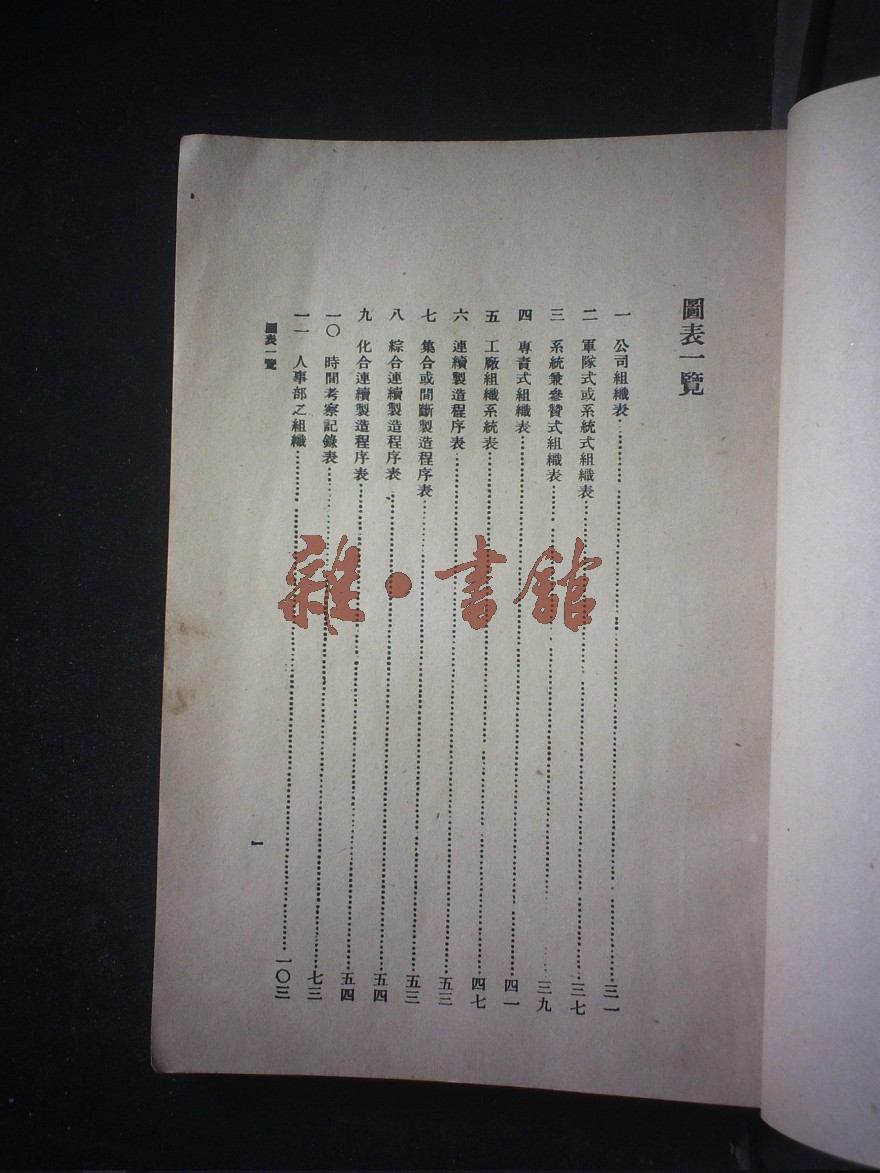 圖表一覽
一 公司組織表……三一
二 軍隊式或系統式組織表……三七
三 系統兼參贊式組織表……三九
四 專責式組織表……四一
五 工廠組織系統表……四七
六 連續製造程序表……五三
七 集合或間斷製造程序表……五三
八 綜合連續製造程序表……五四
九 化合連續製造程序表……五四
一〇 時間考察記錄表……七三
一一 人事部之組織……一〇三
圖表一覽
一
雜·書館